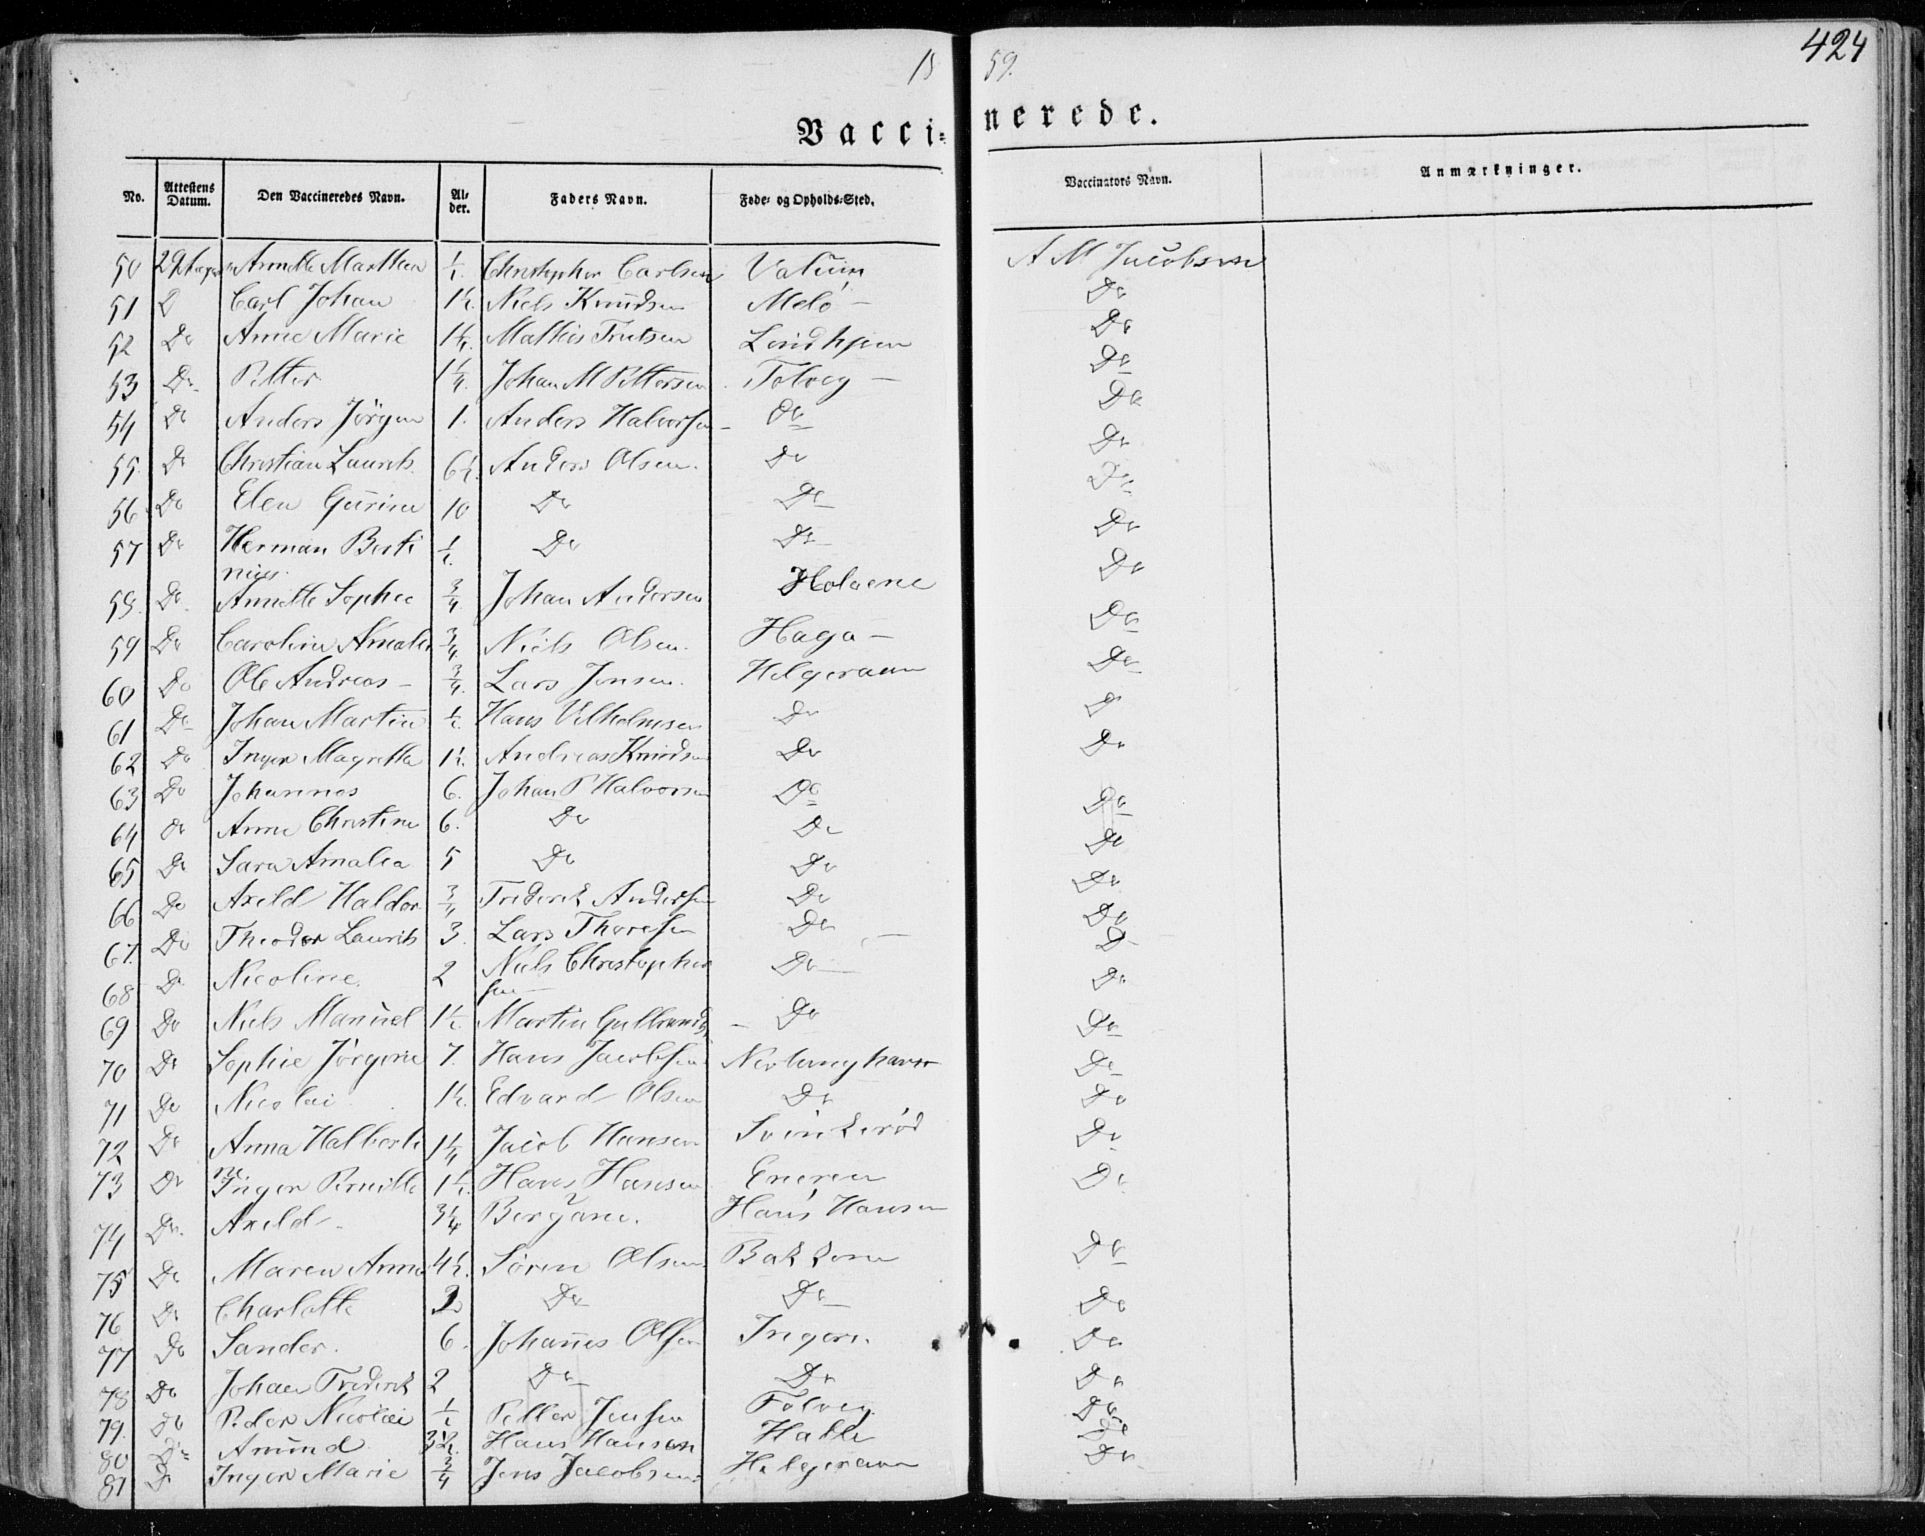 424
18 59.
Vacci- nerede.
No. Attestens Datum. Den Vaccineredes Navn. Al- der. Faders Navn. Føde- og Opholds-Sted. Vaccinators Navn. Anmærkninger.
50 29 Annette Marthea 1/2 Christopher Carlsen Valüm A M Jacobsen
51 D Carl Johan 1 1/2. Niels Knudsen Melö – Do
52 Do Anne Marie 1 1/4. Mathis Lindhjem Do
53 Do Petter 1 1/4. Johan M Pettersen Folvig – Do
54 Do Anders Jörgen 1. Anders Halvorsen – Do Do
55 Do Christian Laurits 6 1/2. Anders Olsen. Do Do
56 Do Elen Gurine 10 Do Do Do
57 Do Herman Berti 1/2. Do Do Do
nius.
58. Do Annette Sophie 3/4 Johan Andersen Holvene Do
59 Do Caroline Amalie 3/4 Niels Olsen. Haga – Do
60 Do Ole Andreas – 3/4. Lars Jensen. Helgeraaen Do
61 Do Johan Martin 1/2 Hans Vilholmsen Do D
62 Do Inger Magrethe 1 1/2. Andreas Knudsen Do Do
63 Do Johannes 6. Johan P Halvorsen Do Do
64 Do Anne Christine 6. Do Do Do
65 Do Sara Amalia 5 Do Do Do
66 Do Axeld Haldor 3/4 Frederik Andersen Do Do
67. Do Theodor Laurits 3. Lars Thoresen Do – D
68 Do Nicoline. 2 Niels Christopher Do – Do
sen –
69 Do Niels Manuel 1 1/2 Martin Gulbrands – Do Do
70 Do Sophie Jörgine 7. Hans Jacobsen Nevlunghavn Do
71 Do Nicolai 1 1/2. Edvard Olsen Do Do
72 Do Anna Halberti 1 1/4 Jacob Hansen Do
ne
73 Do Inger Pernille 1 1/2. Hans Hansen Do
74 Do Axeld 3 1/4 Hans Hansen
75 Do Maren Anne 4 1/2. Sören Olsen Bakkene Do
76 Do Charlotte 2 Do Do Do
77 Do Sander. 6. Johannes Olsen Do
78 Do Johan Frederik 2 Do Do Do
79. Do Peder Nicolai 1/2 Petter Jensen Folvig Do
80 Do Amund 3 1/2. Hans Hansen Halle Do
81 D Inger Marie 3/4 Jens Jacobsen. Helgeraaen Do